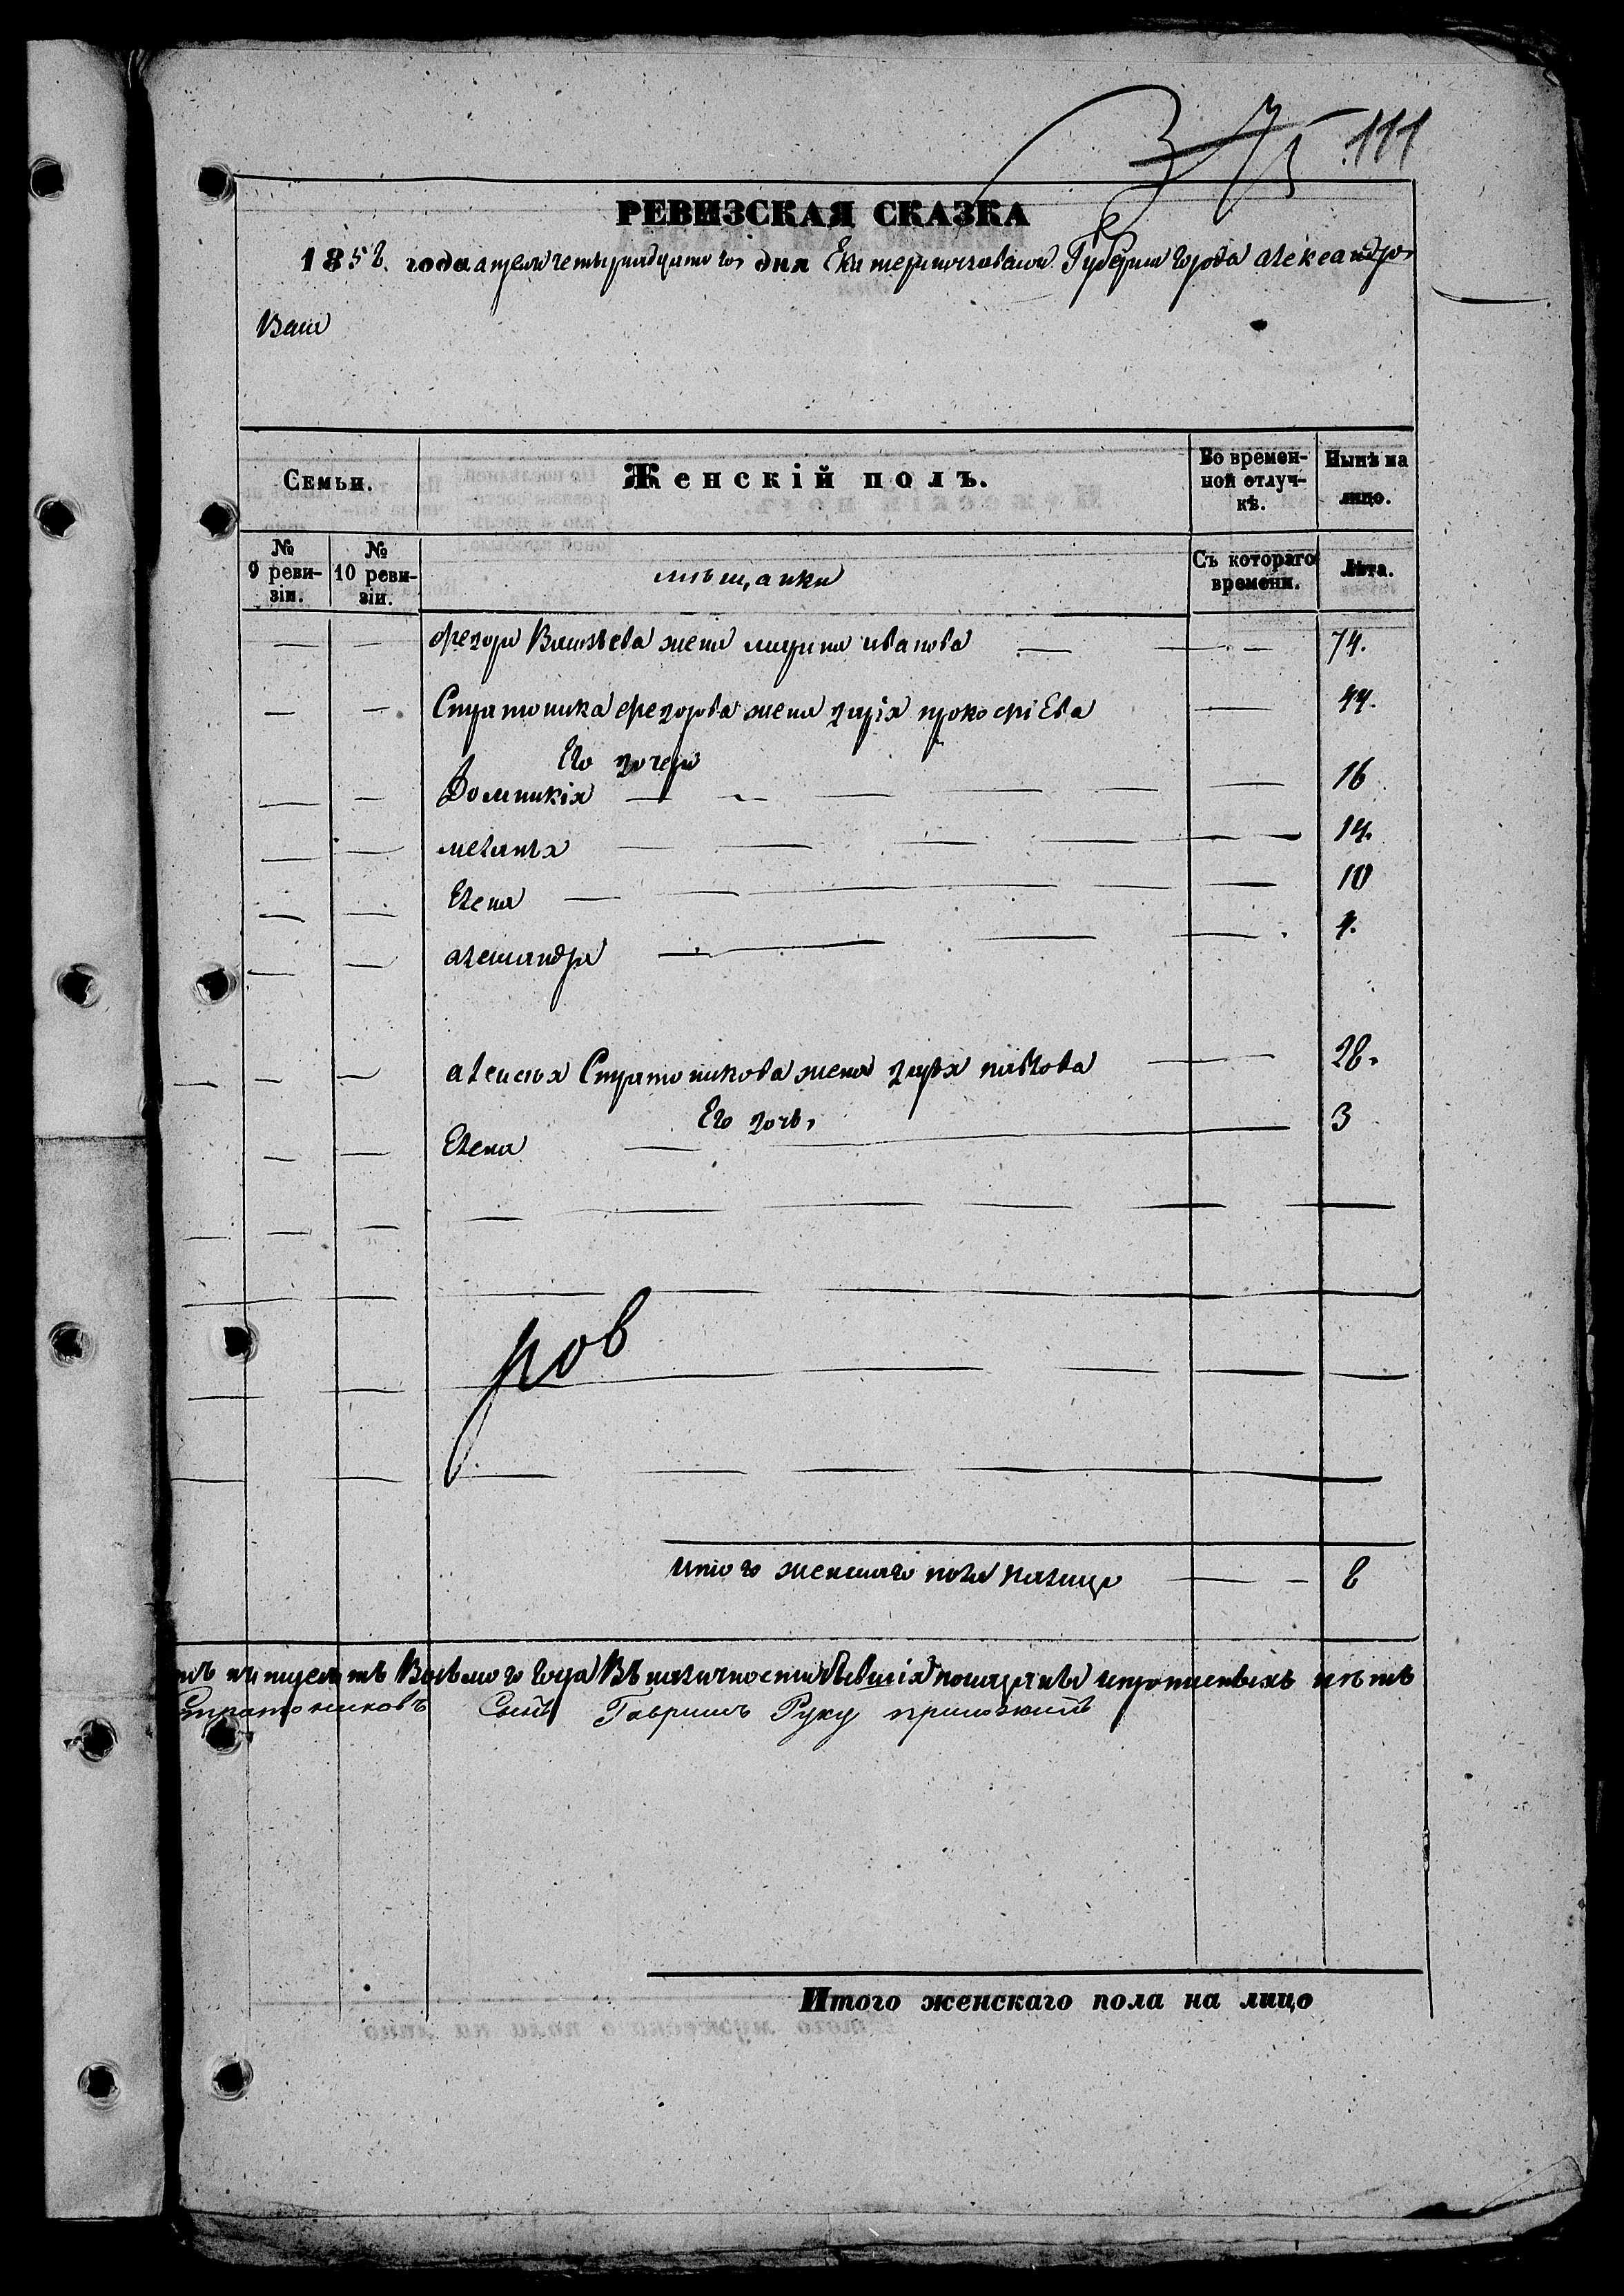 375 111
РЕВИЗСКАЯ СКАЗКА
1858. года апреля четырнадцатого дня Екатеринославской Губернии города александро
Ваш
Семьи. Женскій полъ. Во временной отлучкѣ. Нынѣ на лицо.
№ 9 ревизіи. № 10 ревизіи. мѣщанки Съ котораго времени. Лѣта.
федора Васильева жена марина иванова — 74.
Стратоника федорова жена дарія прокофіева — 44.
Его дочери
Домникія — 16
меланья — 14.
Елена — 10
александра — 4.
алексея Стратоникова жена дарья павлова — 28.
Его дочь,
Елена — 3
ров
итого женскаго пола налицо — 8
Восьмого года Въ наличности бывшія и прописныхъ нѣтъ
Стратониковъ Сынъ Гаврилъ Руку приложилъ
Итого женскаго пола на лицо